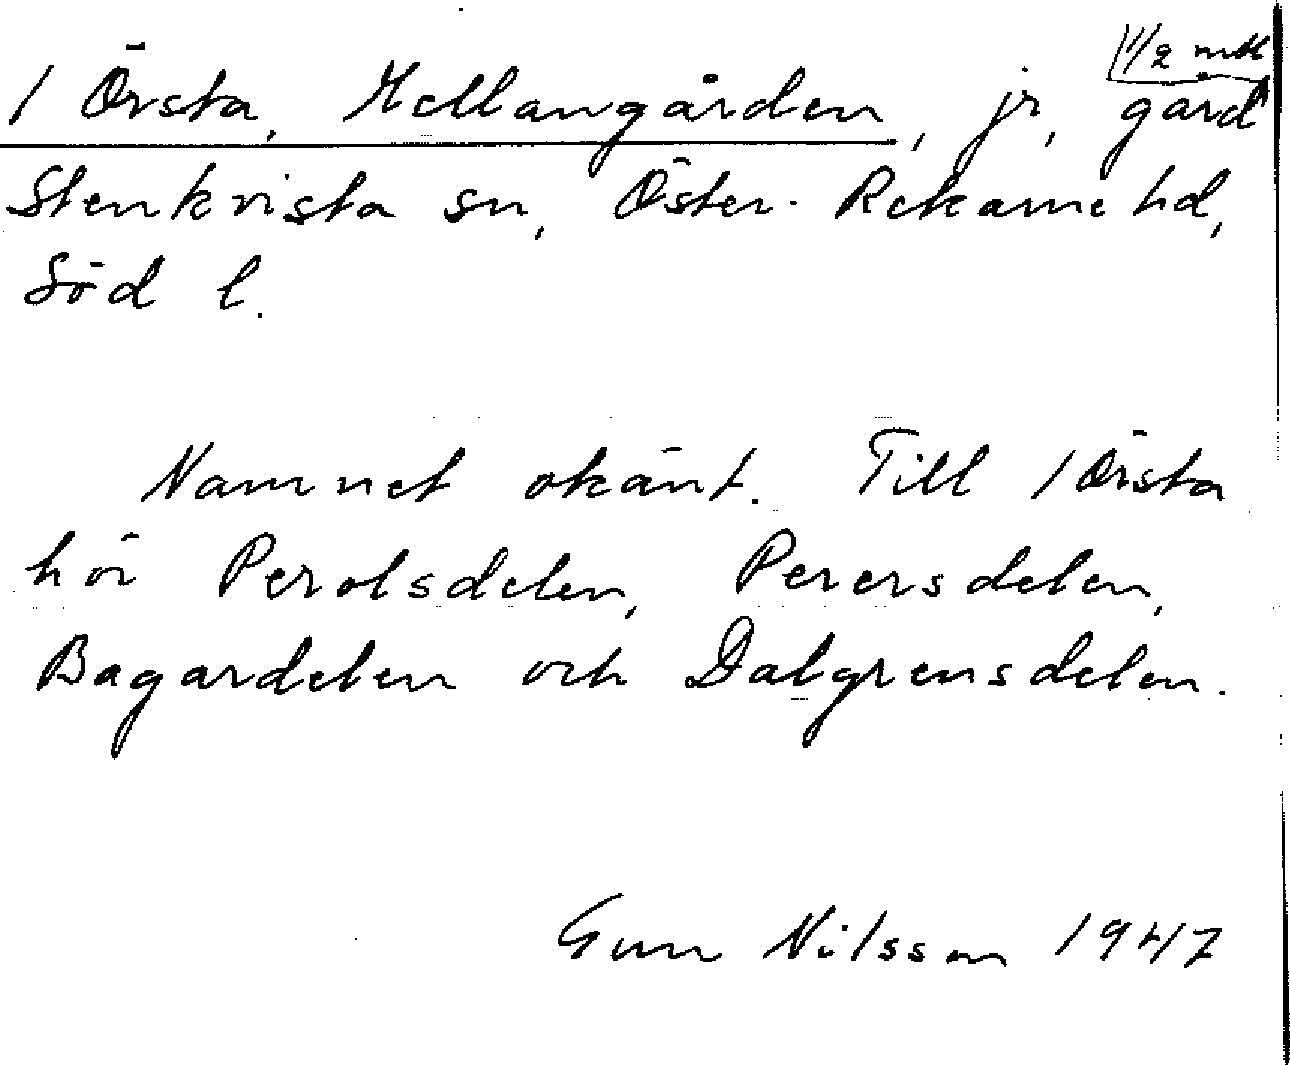 1/2 mtl
1 Örsta, Mellangården, jr, gård
Stenkvista sn, Öster-Rekarne hd,
Söd l.
Namnet okänt. Till 1 Örsta
hör Perolsdelen, Perersdelen,
Bagardelen och Dalgrensdelen.
Gun Nilsson 1947